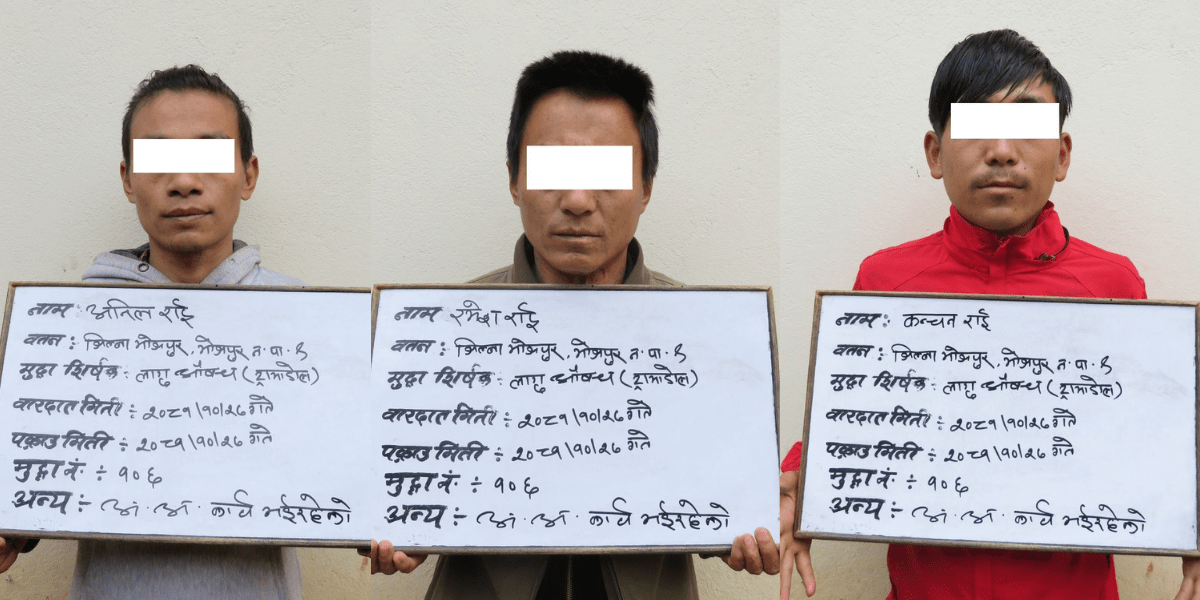 नाम : अनिल राई
वतन : जिल्ला भोजपुर, भोजपुर न.पा.९
मुद्दा शिर्षक : लागु औषध (ट्रामाडोल)
वारदात मिती ÷ २०८१/१०/२६ गते
पक्राउ मिती ÷ २०८१/१०/२६ गते
मुद्दा नं. ÷ १०६
अन्य ÷ अ. अ. कार्य भईरहेको
नाम : रमेश राई
वतन : जिल्ला भोजपुर, भोजपुर न.पा.९
मुद्दा शिर्षक : लागु औषध (ट्रामाडोल)
वारदात मिती ÷ २०८१/१०/२६ गते
पक्राउ मिती ÷ २०८१/१०/२६ गते
मुद्दा नं. ÷ १०६
अन्य ÷ अ. अ. कार्य भईरहेको
नाम : कन्चन राई
वतन : जिल्ला भोजपुर, भोजपुर न.पा.९
मुद्दा शिर्षक : लागु औषध (ट्रामाडोल)
वारदात मिती ÷ २०८१/१०/२६ गते
पक्राउ मिती ÷ २०८१/१०/२६ गते
मुद्दा नं. ÷ १०६
अन्य ÷ अ. अ. कार्य भईरहेको